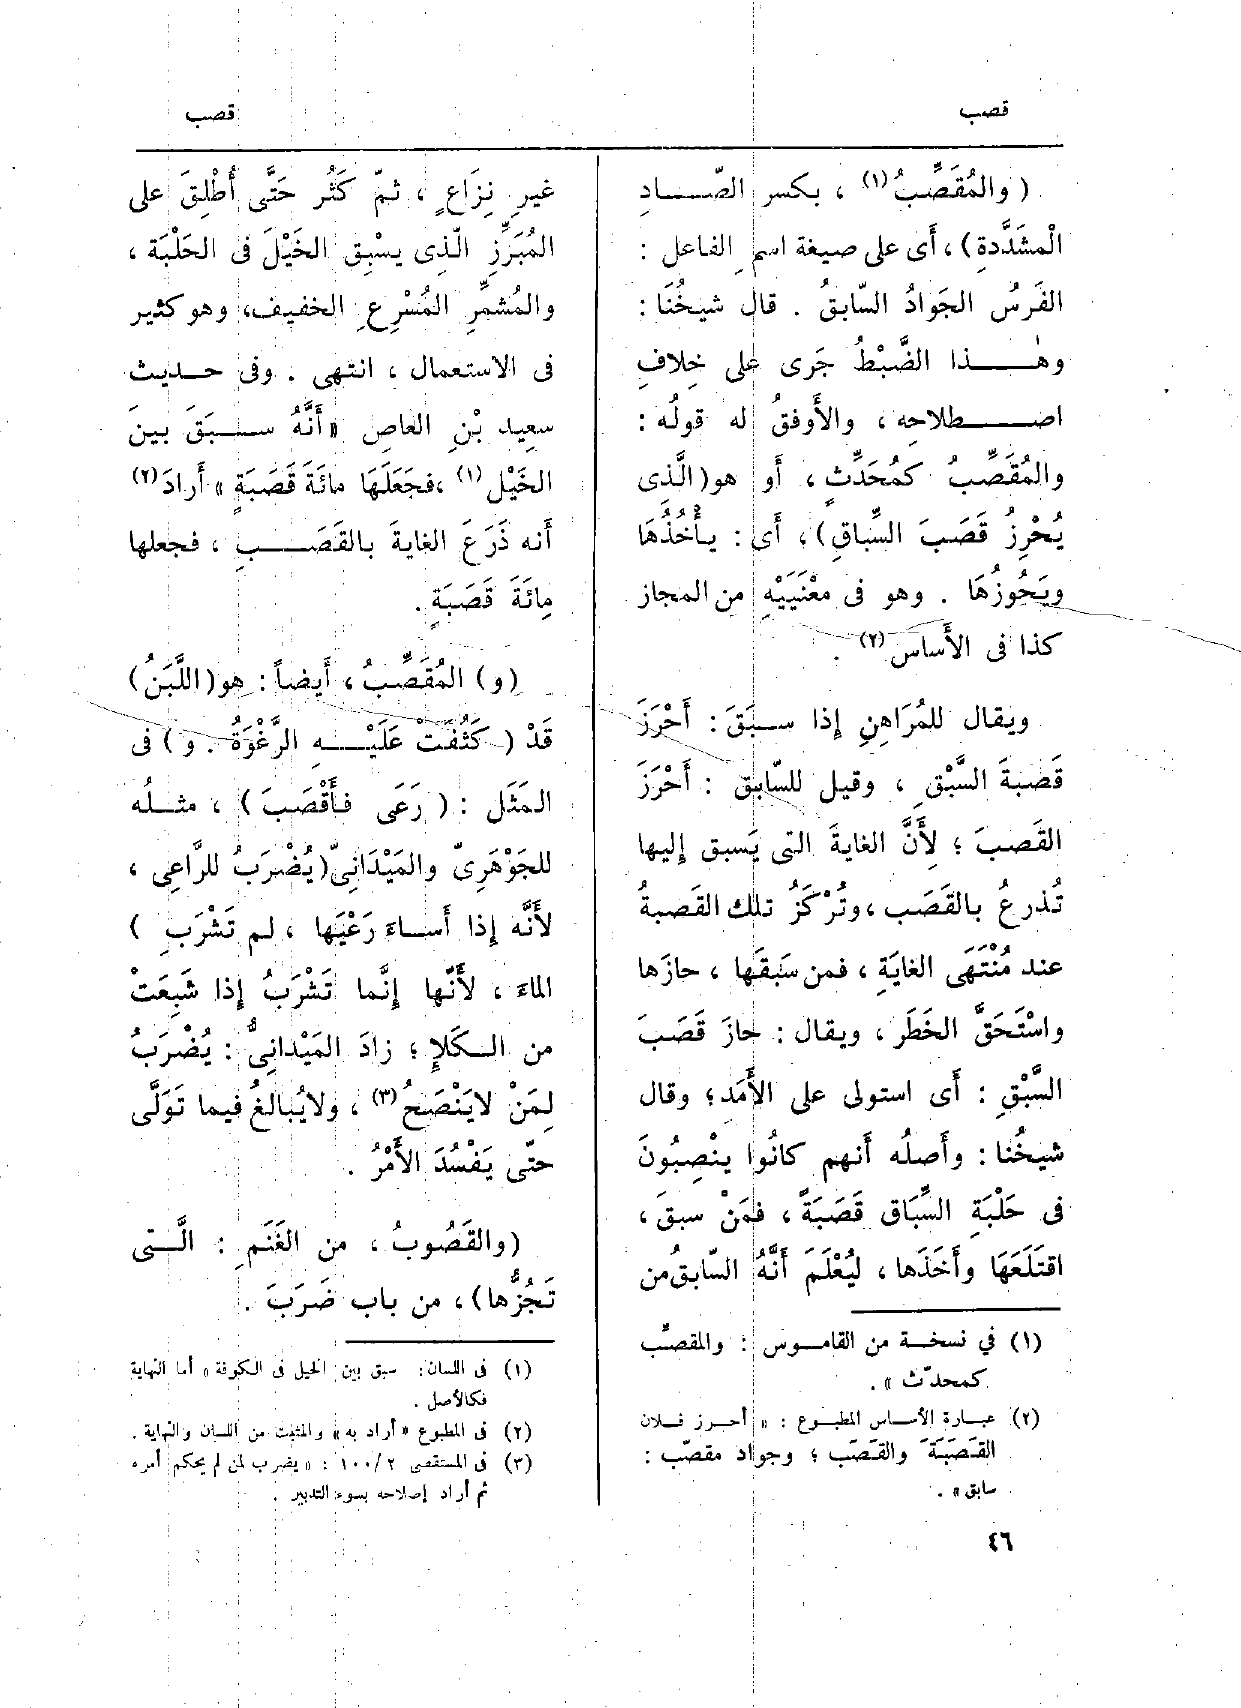 قصب
قصب
(والمُقَصِّبُ(١) ، بكسر الصّاد
الْمشَدَّدةِ)، أَى على صيغة اسمِ الفاعل :
الفَرسُ الجَوادُ السّابقُ . قال شيخُنَا :
وهٰذا الضَّبْطُ جَرى على خِلافِ
اصطلاحه ، والأَوفقُ له قولُه :
والمُقَصِّبُ كمُحَدِّثٍ ، أَو هو (الَّذى
يُحْرِزُ قَصَبَ السِّباقِ)، أَى : يأْخُذُهَا
ويَحُوزُهَا . وهو فى معْنَيَيْهِ من المجاز
كذا فى الأَساس(٢) .
ويقال للمُرَاهِنِ إِذا سبَقَ : أَحْرَزَ
قَصَبةَ السَّبْقِ ، وقيل للسّابِق : أَحْرَزَ
القَصبَ ؛ لِأَنَّ الغايةَ التى يَسبق إِليها
تُذرعُ بالقَصَب ، وتُرْكَزُ تلك القَصبةُ
عند مُنْتَهَى الغايَةِ ، فمن سَبَقَها ، حازَها
واسْتَحَقَّ الخَطَر ، ويقال : حازَ قَصَبَ
السَّبْقِ : أَى استولى على الأَمَد ؛ وقال
شيخُنا : وأَصلُه أَنهم كانُوا ينْصِبُونَ
فى حَلْبَةِ السِّبَاق قَصَبَةً ، فمَنْ سبقَ ،
اقتَلَعَهَا وأَخَذَها ، ليُعْلَمَ أَنَّهُ السّابقُ من
(١) في نسخة من القاموس : والمقصّب
كمحدّث » .
(٢) عبارة الأساس المطبوع : « أحرز فلان
القَصَبَةَ والقَصَب ؛ وجواد مقصّب :
سابق » .
٤٦
غيرِ نِزَاعٍ ، ثمّ كَثُر حَتَّى أُطْلِقَ على
المُبَرِّزِ الّذى يسْبِق الخَيْلَ فى الحَلْبَة ،
والمُشمِّرِ المُسْرِعِ الخفيف، وهو كثير
فى الاستعمال ، انتهى . وفى حديث
سعيد بْنِ العاص « أَنَّهُ سبَقَ بينَ
الخَيْل(١) ، فجَعَلَهَا مائَةَ قَصَبَةٍ » أَرادَ(٢)
أَنه ذَرَعَ الغايةَ بالقَصَبِ ، فجعلها
مِائَةَ قَصَبَةٍ .
(و) المُقَصِّبُ ، أَيضاً : هو (اللَّبَنُ)
قَدْ (كَثُفَتْ عَلَيْهِ الرَّغْوَةُ . و) فى
المَثَل : (رَعَى فأَقْصَبَ) ، مثلُه
للجَوْهَرِىّ والمَيْدَانِىّ (يُضْرَبُ للرَّاعِى ،
لأَنَّه إِذا أَساءَ رَعْيَها ، لم تَشْرَبِ )
الماءَ ، لأَنّها إِنَّما تَشْرَبُ إِذا شَبِعَتْ
من الكَلإِ ؛ زادَ المَيْدانِىُّ : يُضْرَبُ
لِمَنْ لايَنْصَحُ(٣) ، ولايُبالغُ فيما تَوَلَّى
حتّى يَفْسُدَ الأَمْرُ .
(والقَصُوبُ ، من الغَنَمِ : الَّتى
تَجُزُّها) ، من باب ضَرَبَ .
(١) فى اللسان : سبق بين الخيل فى الكوفة » أما النهاية
فكالأصل .
(٢) فى المطبوع «أراد به» والمثبت من اللسان والنهاية .
(٣) فى المستقصى ٢/‏١٠٠ : « يضرب لمن لم يحكم أمره
ثم أراد إصلاحه بسوء التدبير .